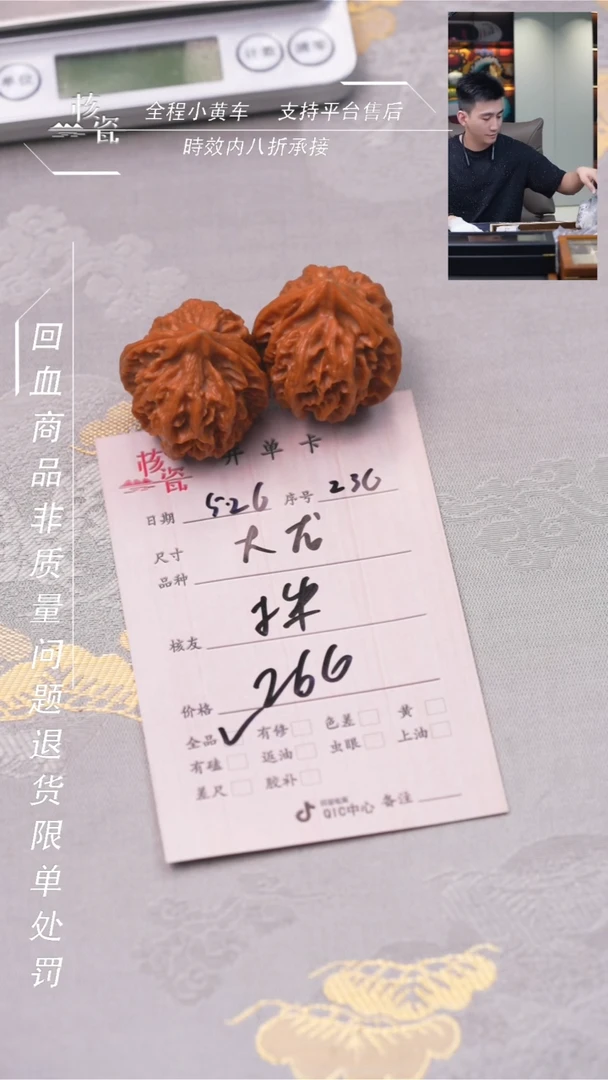 单位
计数
清零
核瓷
全程小黄车 支持平台售后
時效内八折承接
回血商品非质量问题退货限单处罚
核瓷
开单卡
日期 5.26 序号 236
尺寸
大龙
品种
核友
价格 266
全品 ✓ 有修 色差 黄
有磕 返油 虫眼 上油
差尺 胶补
QIC中心 备注